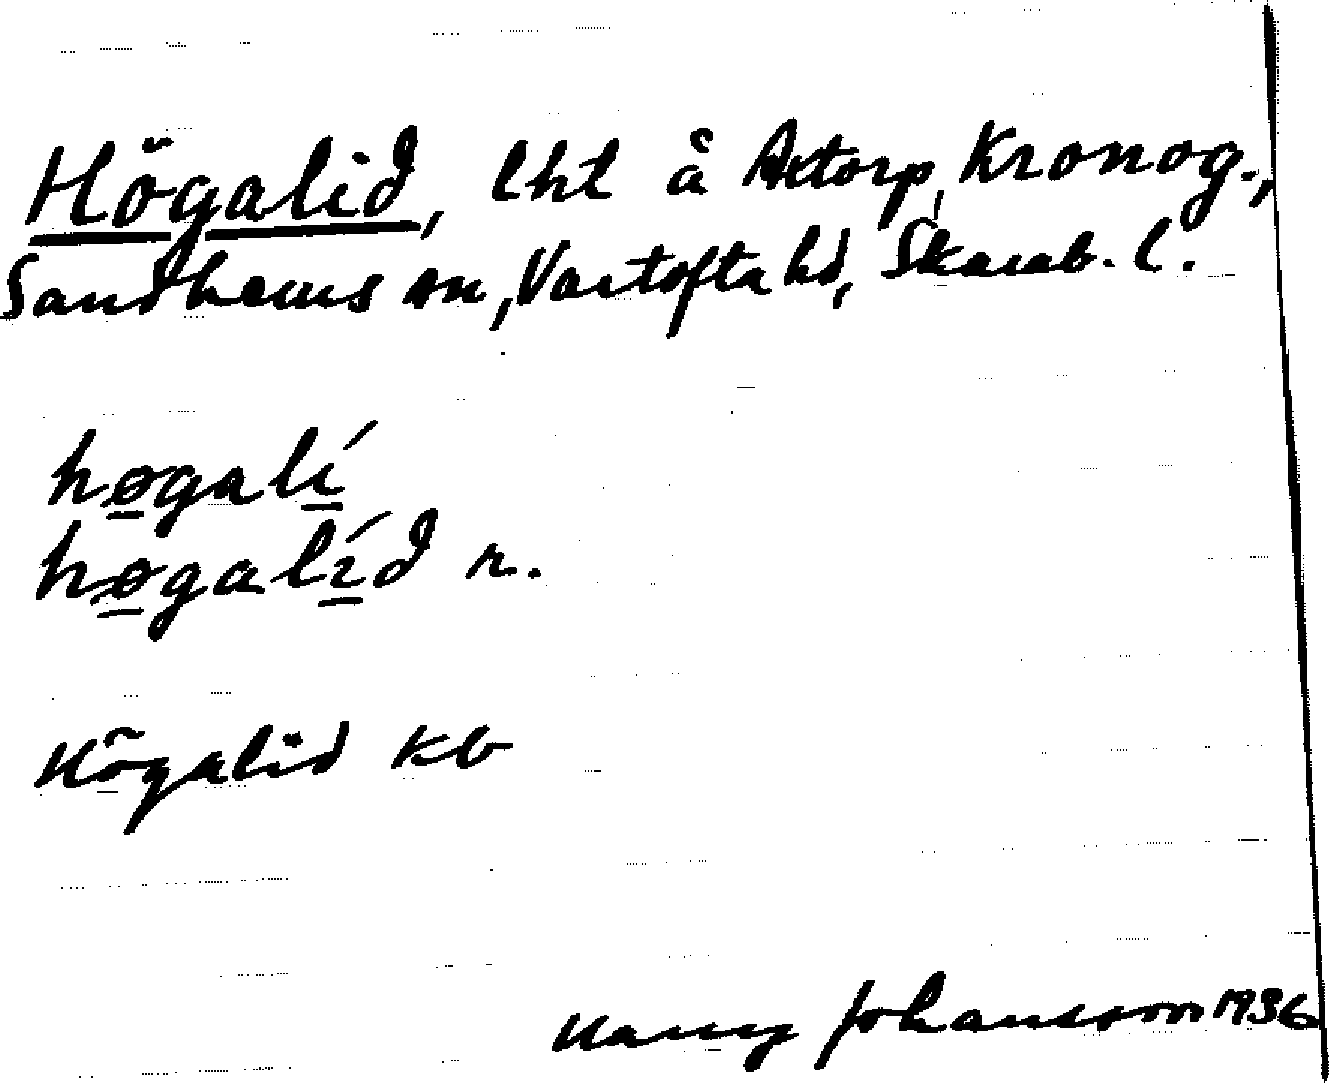 Högalid, lht å Axtorp, Kronog.,
Sandhems sn, Vartofta hd, Skarab. l.
høgalí
høgalíd n.
Högalid kb
Harry Johansson 1936